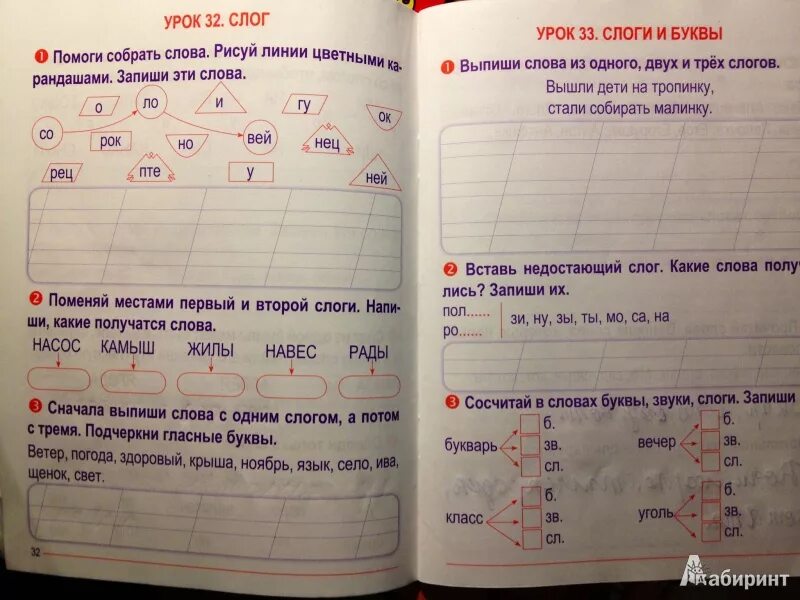 УРОК 32. СЛОГ
1 Помоги собрать слова. Рисуй линии цветными ка-
рандашами. Запиши эти слова.
о ло и гу ок
со рок но вей нец
рец пте у ней
2 Поменяй местами первый и второй слоги. Напи-
ши, какие получатся слова.
НАСОС КАМЫШ ЖИЛЫ НАВЕС РАДЫ
3 Сначала выпиши слова с одним слогом, а потом
с тремя. Подчеркни гласные буквы.
Ветер, погода, здоровый, крыша, ноябрь, язык, село, ива,
щенок, свет.
32
УРОК 33. СЛОГИ И БУКВЫ
1 Выпиши слова из одного, двух и трёх слогов.
Вышли дети на тропинку,
стали собирать малинку.
2 Вставь недостающий слог. Какие слова полу
лись? Запиши их.
пол......
ро...... зи, ну, зы, ты, мо, са, на
3 Сосчитай в словах буквы, звуки, слоги. Запиши
букварь б. зв. сл.
вечер б. зв. сл.
класс б. зв. сл.
уголь б. зв. сл.
Лабиринт